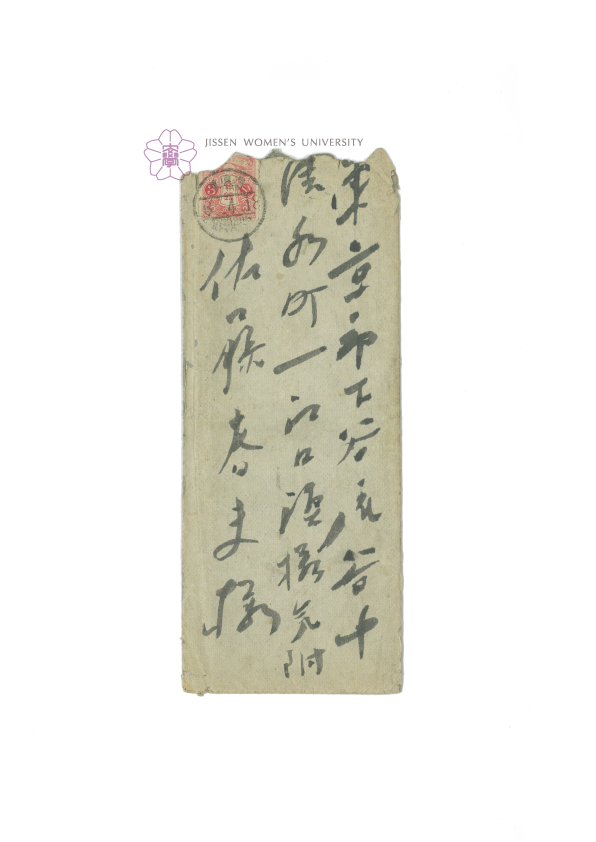 JISSEN WOMEN'S UNIVERSITY
東京市下谷区谷中
清水町一江口渙様気附
佐藤春夫様